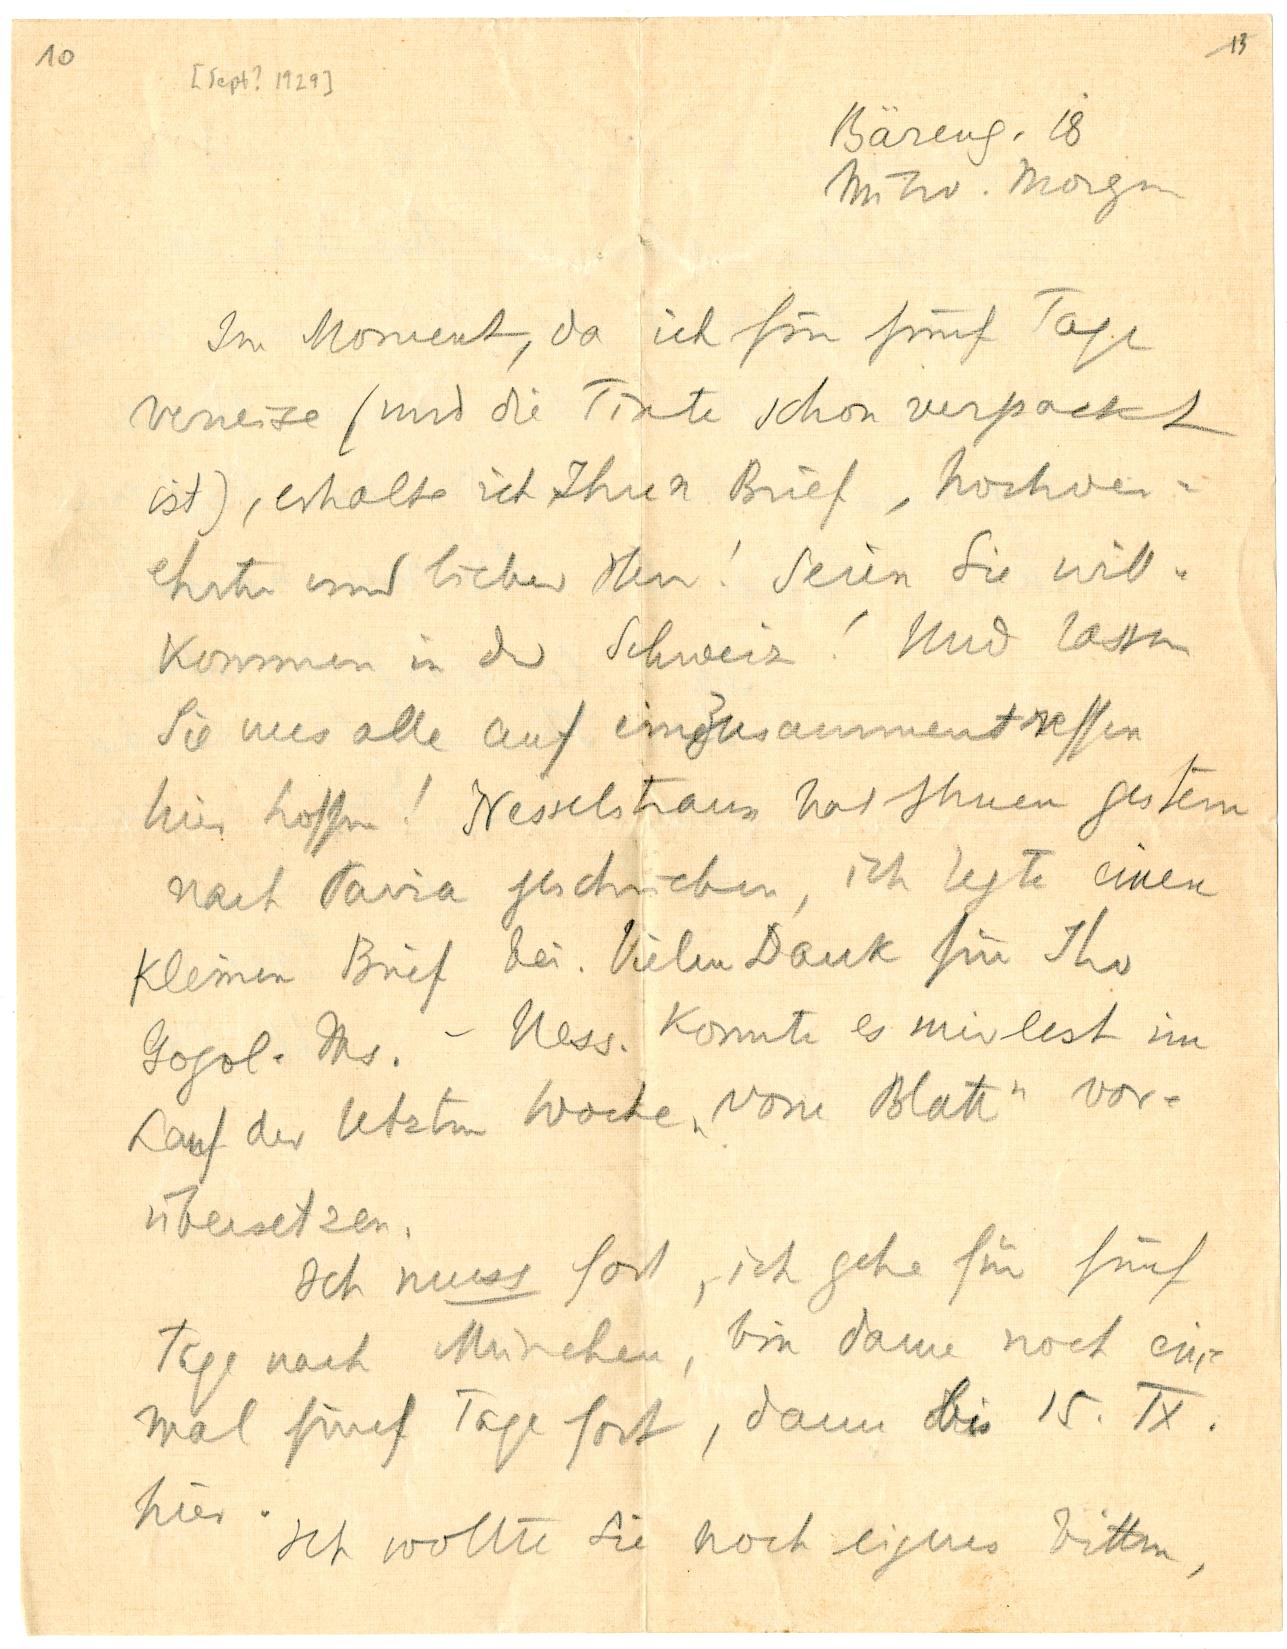 10
13
[Sept? 1929]
Bäreng. 18
Mittw. Morgen
Im Moment, da ich für fünf Tage
verreise (und die Tinte schon verpackt
ist), erhalte ich Ihren Brief, hochver-
ehrter und lieber Herr! Seien Sie will-
kommen in der Schweiz! Und lassen
Sie uns alle auf ein Zusammentreffen
hier hoffen! Nesselstrauss hat Ihnen gestern
nach Pavia geschrieben, ich legte einen
kleinen Brief bei. Vielen Dank für Ihr
Gogol-Ms. - Ness. konnte es mir erst im
Lauf der letzten Woche „vom Blatt" vor-
übersetzen.
Ich muss fort, ich gehe für fünf
Tage nach München, bin dann noch ein-
mal fünf Tage fort, dann bis 15. IX.
hier.
Ich wollte Sie noch eigens bitten,